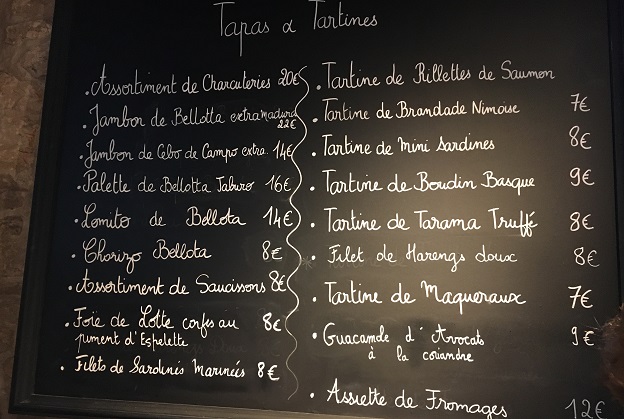 Tapas & Tartines
. Assortiment de Charcuteries 20€
. Jambon de Bellotta extramadura 22€
. Jambon de Cebo de Campo extra. 14€
. Palette de Bellotta Jabuco 16€
. Lomito de Bellota 14€
. Chorizo Bellota 8€
. Assortiment de Saucissons 8€
. Foie de Lotte corfes au 8€
piment d'Espelette
. Filets de Sardines Marinées 8€
. Tartine de Rillettes de Saumon
. Tartine de Brandade Nimoise 7€
. Tartine de Mini Sardines 8€
. Tartine de Boudin Basque 9€
. Tartine de Tarama Truffé 8€
. Filet de Harengs doux 8€
. Tartine de Maqueraux 7€
. Guacamole d'Avocats 9€
à la coriandre
. Assiette de Fromages 12€